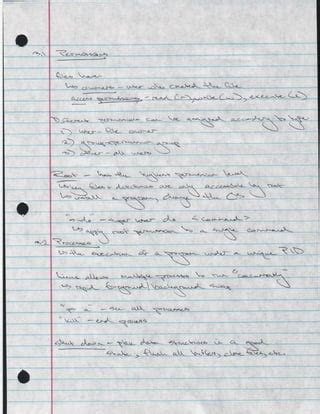 3.1 Permissions
files have:
↳ owners - user who created the file
access permissions - read (r), write (w), execute (x)
Different permissions can be assigned according to type
1) user - file owner
2) group - permission group
3) other - all users
Root - has the highest permission level
↳ key files + directories are only accessible by root
↳ install a program, change the OS
"sudo" - super user do <command>
↳ apply root permission to a single command
3.2 Processes
↳ the execution of a program under a unique PID
Linux allows multiple processes to run "concurrently"
↳ rapid foreground/background swap
- see all processes
"kill" - end process
shut down - place data structures in a good
state, flush all buffers, close files, etc.